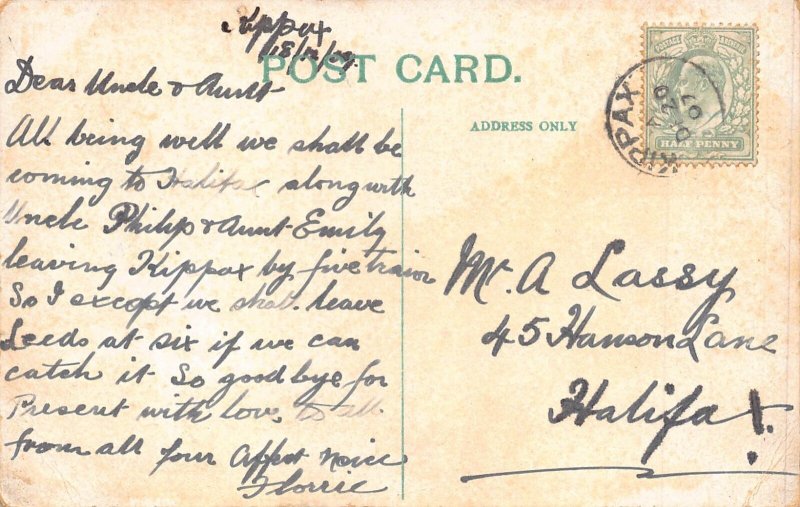 Kippax
18/12/07
POST CARD.
ADDRESS ONLY
POSTAGE REVENUE
HALF PENNY
KIPPAX
DE 20
07
Dear Uncle & Aunt
All being well we shall be
coming to Halifax along with
Uncle Philip & Aunt Emily
leaving Kippax by five train
So I except we shall leave
Leeds at six if we can
catch it So good bye for
Present with love to all
from all four Affect Neice
Florrie
Mr. A Lassy
45 Hanson Lane
Halifax.